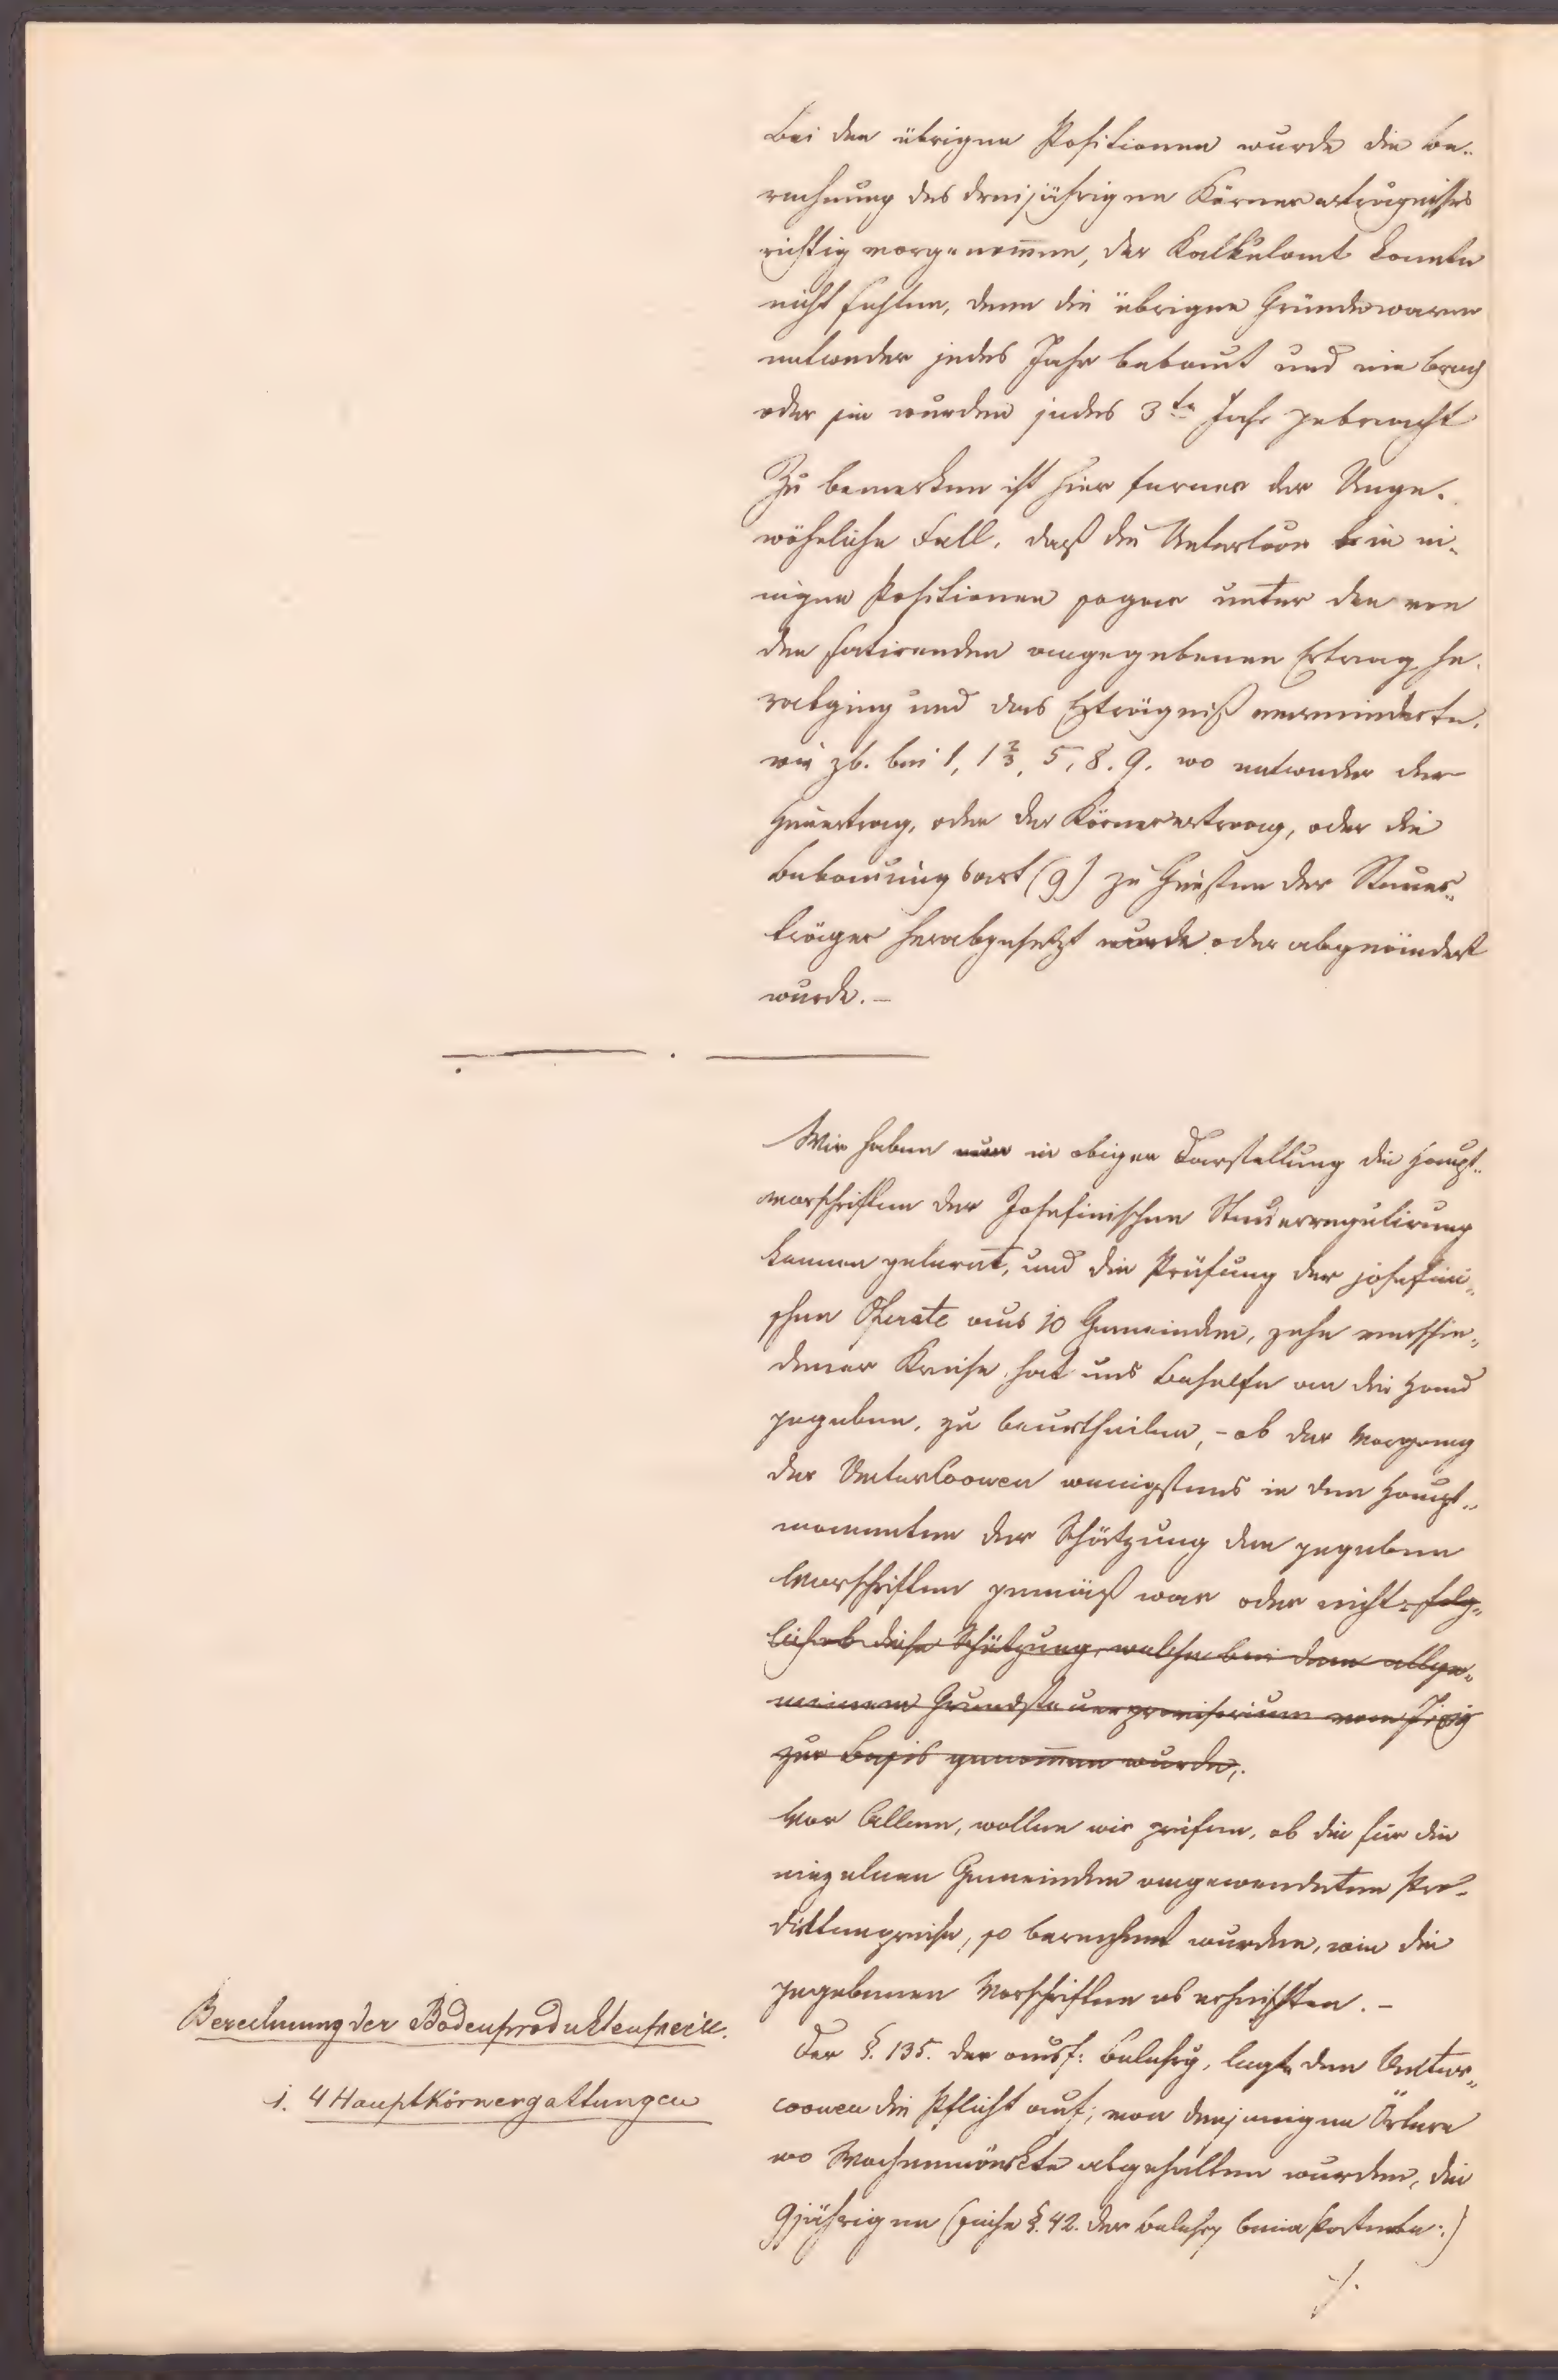 Bei den übrigen Positionen wurde die Be„
rechnung des dreijährigen Körnererträgnisses
richtig vorgenom̅en, der Kalkulant konnte
nicht fehlen, denn die übrigen Gründe waren
entweder jedes Jahr bebaut und nie brach
oder sie wurden jedes 3te Jahr gebracht
Zu bemerken ist hier ferner der Unge„
wöhnliche Fall, daß die Unterloon in ei„
nigen Positionen sogar unter den von
den fatirenden angegebenen Ertrag he„
rabging und das Erträgniß verminderte,
wie zb. bei 1, 1 2/3, 5, 8. 9. wo entweder der
Heuertrag, oder der Körnerertrag, oder die
Bebauungsart (9) zu Gunsten der Steuer„
träger herabgesetzt wurde oder abgeändert
wurde. –
Wir haben nun in obiger Darstellung die Haupt„
vorschriften der Josefinischen Steuerregulirung
kennen gelernt, und die Prüfung der josefini„
schen Operate aus 10 Gemeinden, zehn verschie„
dener Kreise, hat uns Behelfe an die Hand
gegeben, zu beurtheilen, – ob der Vorgang
der Unterloowen wenigstens in den Haupt„
momenten der Schätzung den gegeben
Vorschriften gemäß war oder nicht: folg„
lich ob diese Schätzung, welche bei dem allge„
meinen Grundsteuerprovisorium vom
zur Basis genom̅en wurde,.
Vor Allem, wollen wir prüfen, ob die für die
einzelnen Gemeinden angewendeten Pro„
duktenpreise, so berechnet wurden, wie die
gegebenen Vorschriften es erheischten. –
Berechnung der Bodenproduktenpreise.
1. 4 Hauptkörnergattungen
Der §. 135. der ausf: Belehrg, legte den Unter„
coowen die Pflicht auf, von denjenigen Örtern
wo Wochenmärkte abgehalten wurden, die
9jährigen (siehe §. 42. der Belehrg beim Patente:)
./.